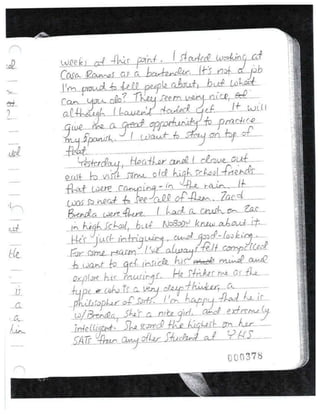 weeks at this point. I started working at
Casa Ramos as a bartender. It's not a job
I'm proud to tell people about, but what
can you do? They seem very nice,
although I haven't started yet. It will
give me a great opportunity to practice
my Spanish. I want to stay on top of
that.
Yesterday, Heather and I drove out
east to visit some old high school friends
that were camping - in the rain. It
was so neat to see all of them. Zac &
Brenda were there. I had a crush on Zac
in high school, but NOBODY knew about it.
He's just intriguing and good-looking.
For some reason I've always felt compelled
to want to get inside his mind and
explore his musings. He strikes me as the
type who is a very deep thinker, a
philosopher of sorts. I'm happy that he is
w/Brenda, she's a nice girl, and extremely
intelligent. She scored the highest on her
SATs than any other student at YHS
000378